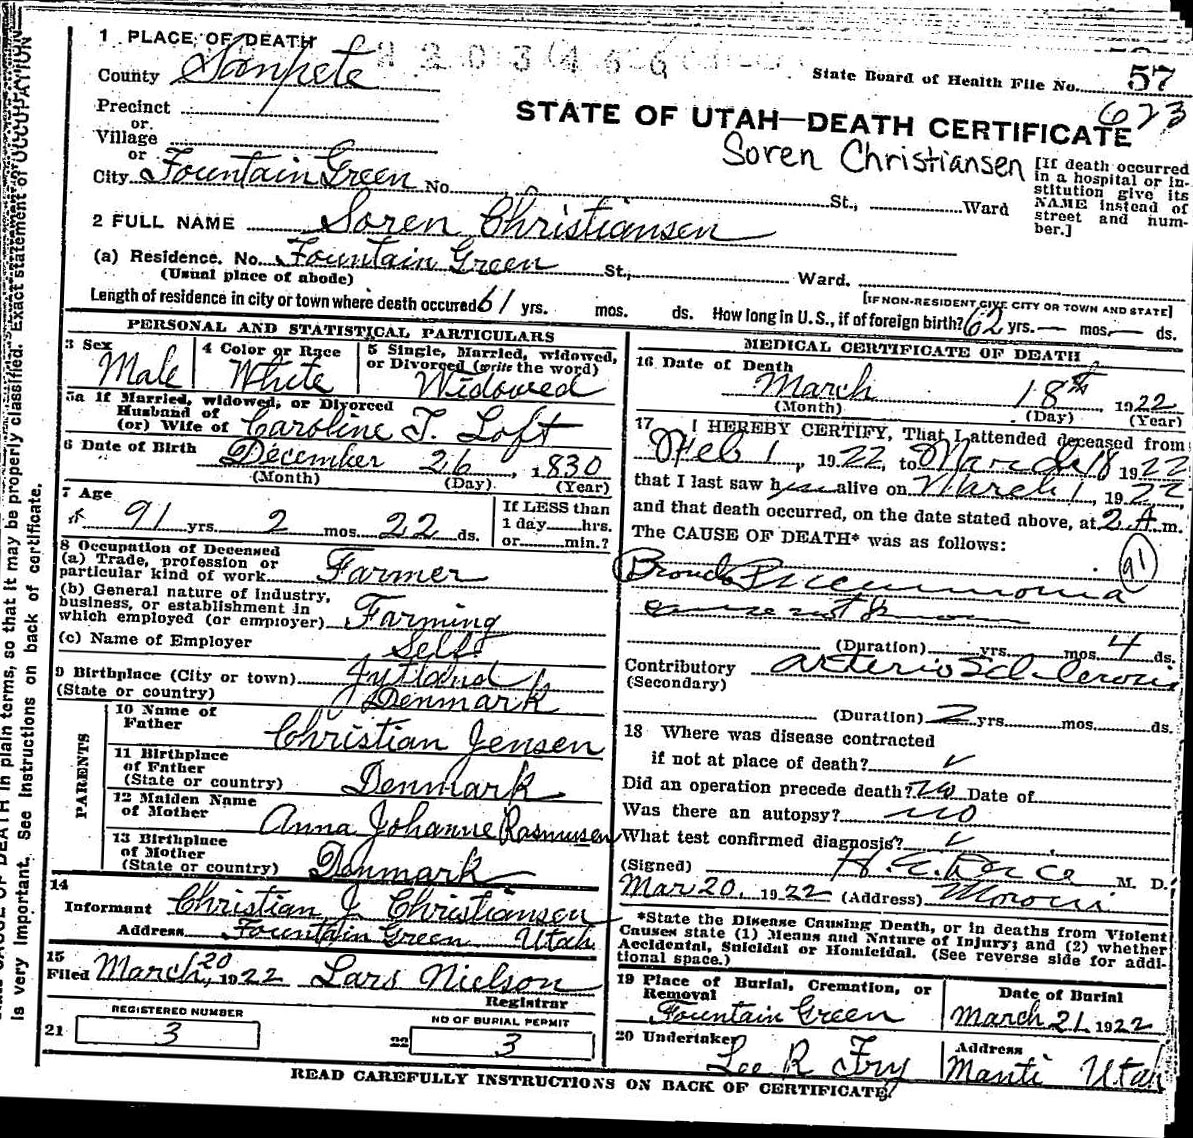 1 PLACE OF DEATH
County Sanpete
State Board of Health File No. 57
623
Precinct
or
Village
or
City Fountain Green No. St., Ward
STATE OF UTAH—DEATH CERTIFICATE
Soren Christiansen
[If death occurred
in a hospital or in-
stitution give its
NAME instead of
street and num-
ber.]
2 FULL NAME Soren Christiansen
(a) Residence. No. Fountain Green St., Ward.
(Usual place of abode) [IF NON-RESIDENT GIVE CITY OR TOWN AND STATE]
Length of residence in city or town where death occured 61 yrs. mos. ds. How long in U.S., if of foreign birth? 62 yrs. — mos. — ds.
PERSONAL AND STATISTICAL PARTICULARS
3 Sex
Male
4 Color or Race
White
5 Single, Married, widowed,
or Divorced (write the word)
Widowed
5a If Married, widowed, or Divorced
Husband of
(or) Wife of Caroline T. Loft
6 Date of Birth December 26, 1830
(Month) (Day) (Year)
7 Age
91 yrs. 2 mos. 22 ds.
If LESS than
1 day hrs.
or min.?
8 Occupation of Deceased
(a) Trade, profession or
particular kind of work Farmer
(b) General nature of industry,
business, or establishment in
which employed (or employer) Farming
(c) Name of Employer Self
9 Birthplace (City or town) Jutland
(State or country) Denmark
PARENTS
10 Name of
Father Christian Jensen
11 Birthplace
of Father
(State or country) Denmark
12 Maiden Name
of Mother Anna Johanne Rasmusen
13 Birthplace
of Mother
(State or country) Denmark
14
Informant Christian J. Christiansen
Address Fountain Green Utah
15
Filed March 20, 1922 Lars Nielson
Registrar
REGISTERED NUMBER
21 3
NO OF BURIAL PERMIT
22 3
MEDICAL CERTIFICATE OF DEATH
16 Date of Death
March 18th, 1922
(Month) (Day) (Year)
17 I HEREBY CERTIFY, That I attended deceased from
Feb 1, 1922, to March 18 1922
that I last saw h alive on March 1, 1922,
and that death occurred, on the date stated above, at 2 A m.
The CAUSE OF DEATH* was as follows:
91
Broncho Pneumonia
(Duration) yrs. mos. 4 ds.
Contributory arterio Sclerosis
(Secondary)
(Duration) 2 yrs. mos. ds.
18 Where was disease contracted
if not at place of death?
Did an operation precede death? no Date of
Was there an autopsy? no
What test confirmed diagnosis?
(Signed) M. D.
Mar 20, 1922 (Address) Moroni
*State the Disease Causing Death, or in deaths from Violent
Causes state (1) Means and Nature of Injury; and (2) whether
Accidental, Suicidal or Homicidal. (See reverse side for addi-
tional space.)
19 Place of Burial, Cremation, or
Removal
Fountain Green
Date of Burial
March 21, 1922
20 Undertaker
Lee R Fry
Address
Manti Utah
READ CAREFULLY INSTRUCTIONS ON BACK OF CERTIFICATE
CAUSE OF DEATH in plain terms, so that it may be properly classified. Exact statement of OCCUPATION
is very important. See instructions on back of certificate.